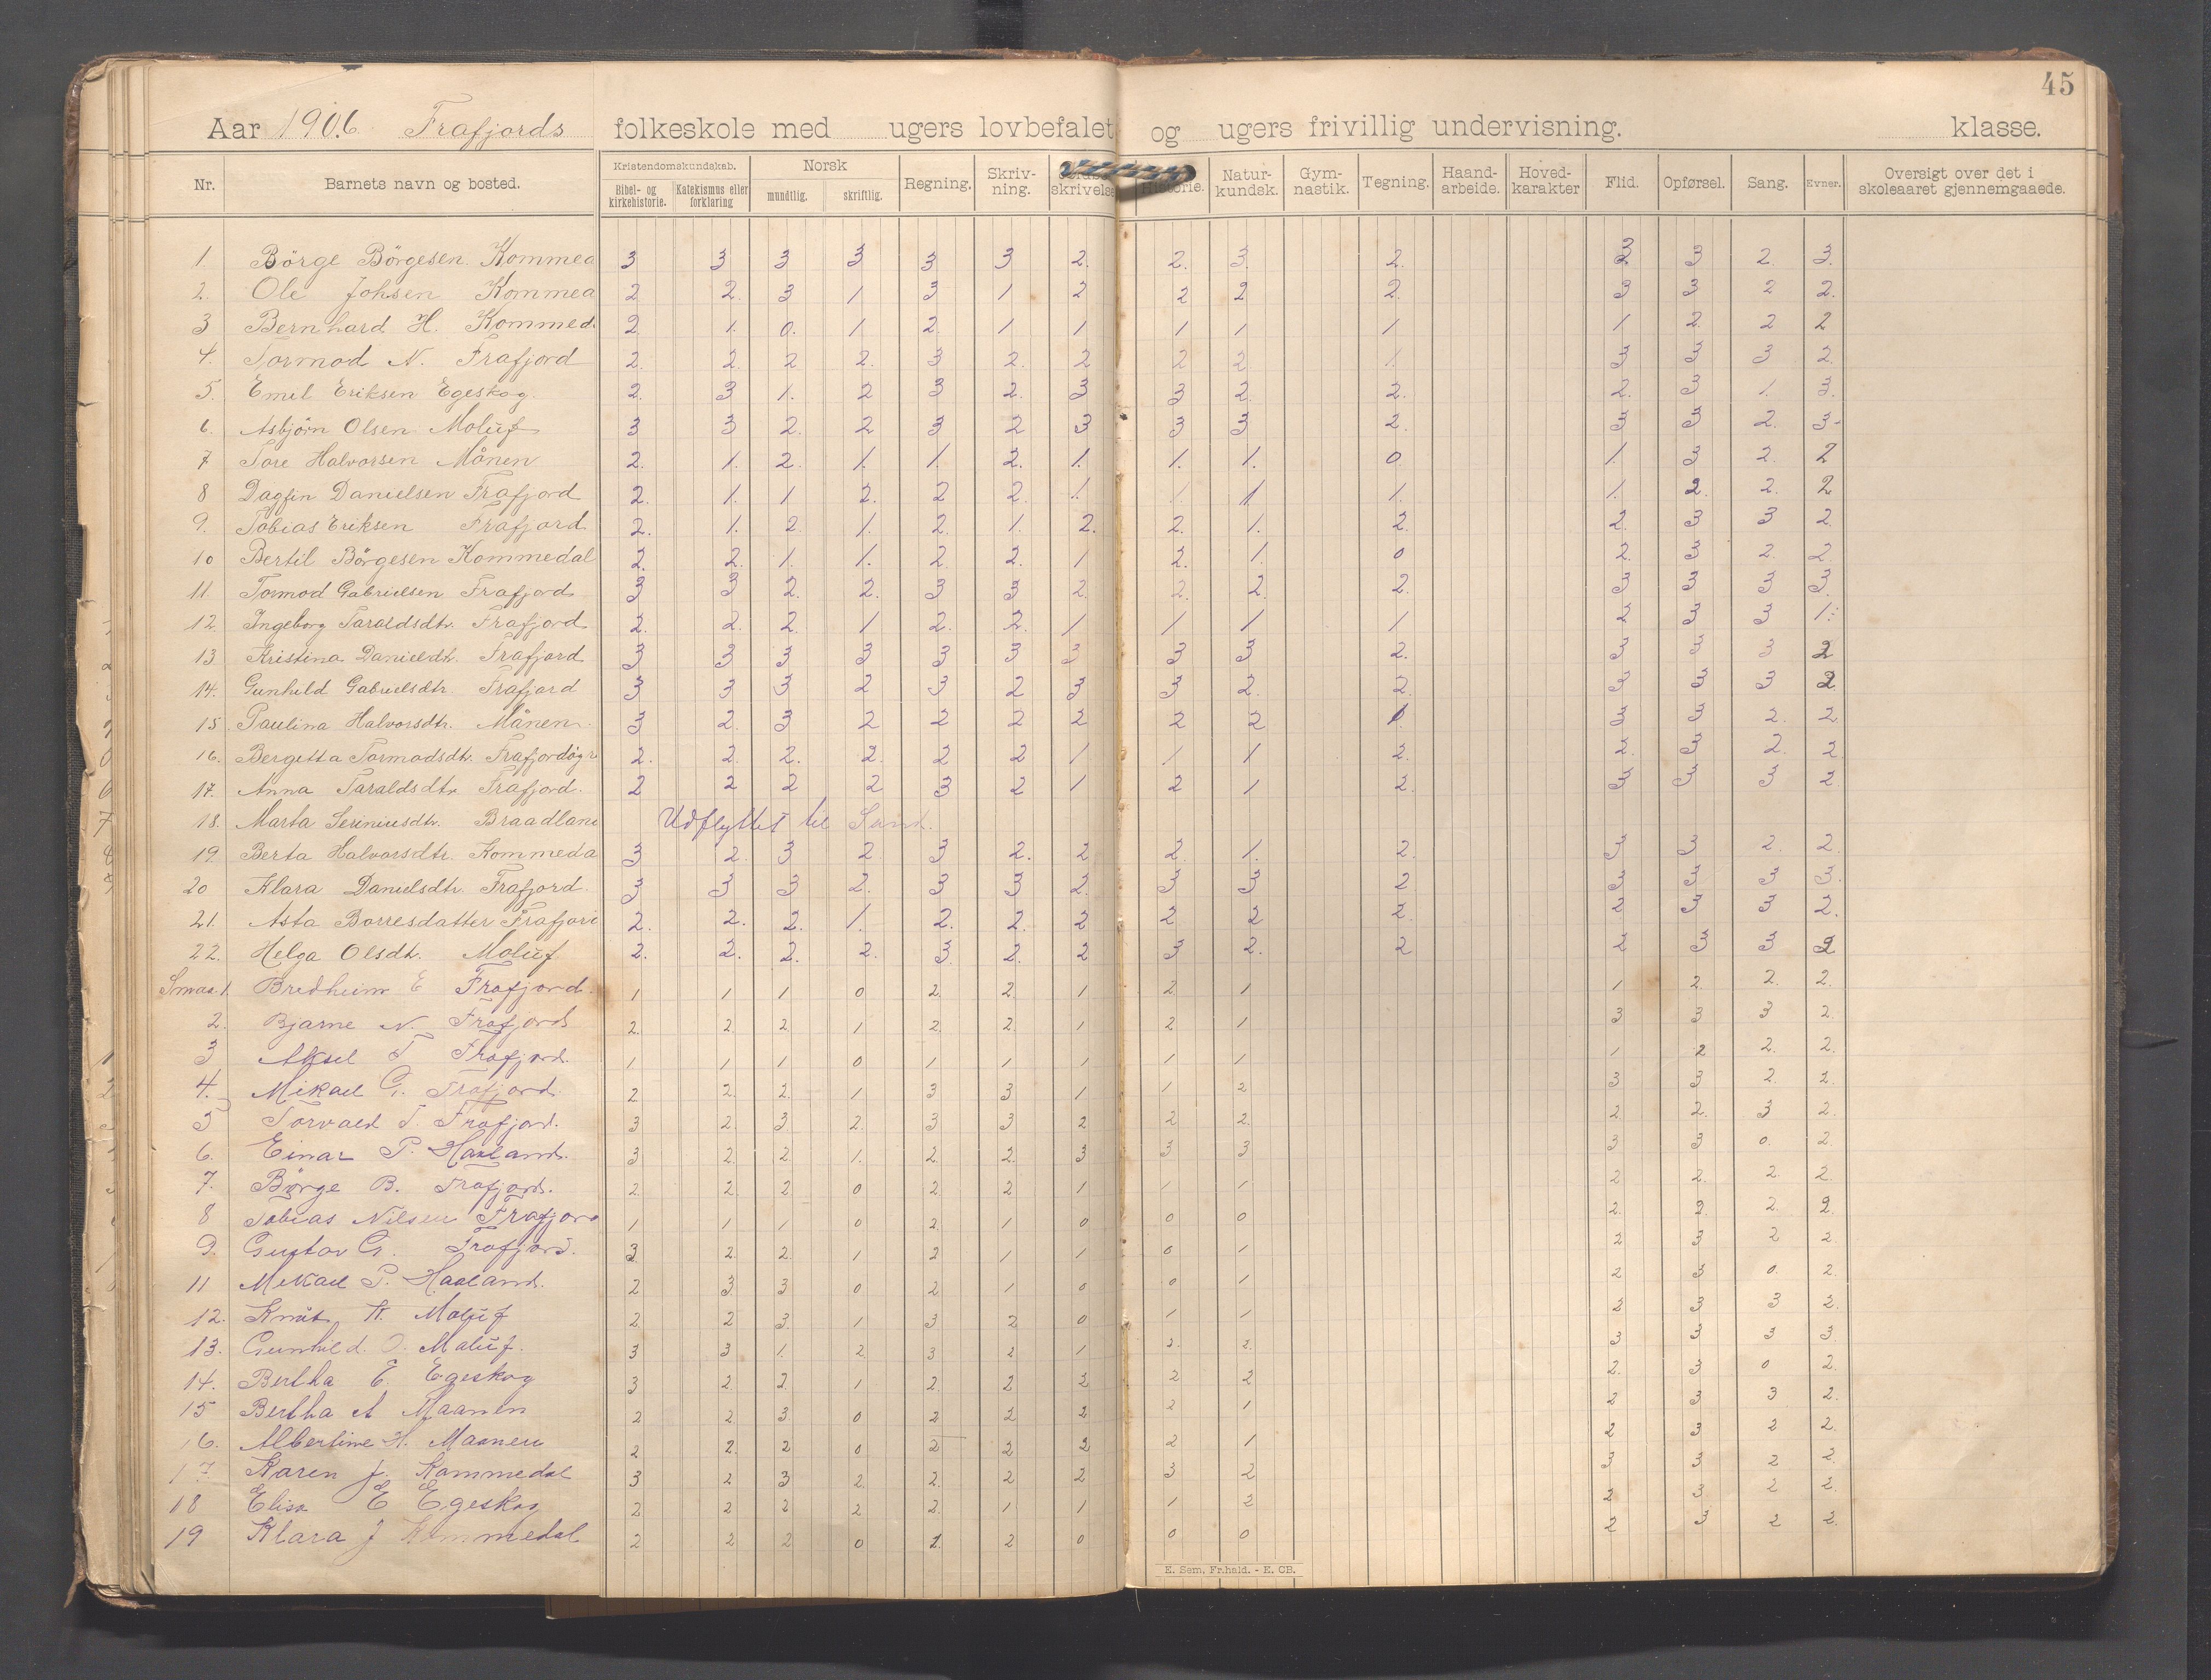 45
Aar 1906 Frafjords folkeskole med ugers lovbefalet og ugers frivillig undervisning. klasse.
Nr. Barnets navn og bosted. Kristendomskundskab. Bibel- og kirkehistorie. Katekismus eller forklaring Norsk mundtlig. skriftlig. Regning. Skriv-ning. skrivelse Historie. Natur-kundsk. Gym-nastik. Tegning. Haand-arbeide. Hoved-karakter Flid. Opførsel. Sang. Evner. Oversigt over det i skoleaaret gjennemgaaede.
1. Börge Börgesen Kommeda 3 3 3 3 3 3 2. 2. 3. 2. 3 3 2. 3.
2. Ole Johsen Kommeda 2 2. 3 1 3 1 2 2 2 2. 3 3 2 2.
3 Bernhard H. Kommed 2. 1. 0. 1 2. 1 1 1 1 1 1 2 2 2
4. Tormod N. Frafjord 2. 2. 2 2. 3 2. 2 2 2 1. 3 3 3 2.
5. Emil Eriksen Egeskog. 2. 3 1. 2 3 2. 3 3 2. 2. 2. 3 1. 3.
6. Asbjörn Olsen Moluf 3 3 2. 2 3 2 3 3 3 2. 3 3 2. 3-
7 Tore Halvorsen Månen 2. 1. 2. 1. 1. 2. 1. 1. 1. 0. 1. 3 2. 2
8 Dagfin Danielsen Frafjord 2. 1. 1 2. 2 2. 1. 1 1 1. 1. 2. 2. 2
9. Tobias Eriksen Frafjord 2. 1. 2. 1. 2. 1. 2. 2. 1. 2. 2. 3 3 2.
10 Bertil Börgesen Kommedal 2. 2. 1. 1. 2. 2. 1 2. 1. 0 2. 3 2. 2.
11. Tormod Gabrielsen Frafjord 3 3 2. 2. 3 3 2. 2. 2. 2. 3 3 3 3.
12. Ingeborg Taraldsdtr. Frafjord 2. 2. 2. 1 2. 2. 1 1 1 1 2 3 3 1.
13 Kristina Danieldtr. Frafjord 3 3 3 3 3 3 3 3 3 2. 3 3 3 2
14. Gunhild Gabrielsdtr. Frafjord 3 3 3 2 3 2 3 3 2. 2. 3 3 3 2.
15. Paulina Halvorsdtr. Månen 3 2. 3 2 2 2 2 2 2 1. 3 3 2. 2
16. Bergitta Tormodsdtr. 2. 2. 2. 2. 2 2 1 1 1 2. 2. 3 2. 2
17. Anna Taraldsdtr Frafjord. 2 2 2 2 3 2 1 2 1 2. 3 3 3 2
18. Marta Seriniusdtr. Braadland Udflyttet til Sand.
19. Berta Halvorsdtr. Kommeda 3 2. 3 2. 3 2. 2 2. 1. 2. 3 3 2. 2.
20 Klara Danielsdtr. Frafjord. 3 3 3 2. 3 3 2. 3 3 2 3 3 3 3.
21. Asta Borresdatter Frafjord 2. 2. 2. 1. 2. 2. 2 2 2 2. 2 3 3 2.
22. Helga Olsdtr. Moluf 2. 2. 2. 2. 3. 2. 2 3 2. 2 2 3 3 2
Smaa 1. Bredheim E Frafjord. 1 1 1 0 2. 2. 1 2 1 1 2. 2. 2.
2. Bjarne N. Frafjord 2. 2. 2. 1 2. 2. 1 2 1 3 3 3 2.
3 Aksel T Frafjord. 1 1 1 0 1 1 1 1 1 1 2 2. 2.
4. Mikael G. Frafjord. 2 2. 2. 1 3 3 1 1 2 3 3 2. 2.
5 Torvald T. Frafjord. 3 2. 3 2. 3 3 2 2 2. 2. 2. 3 2.
6. Einar P. Haaland. 3 2. 2. 1. 2. 2. 3 3 3 3 3 0. 2.
7. Börge B. Frafjord. 2 2. 2 0 2. 2 1 1 1 2 2. 2 2.
8 Tobias Nilsen Frafjord 1 1 1 0 2. 1 0 0 0 2. 2. 2. 2.
9. Gustav G. Frafjord. 3 2. 2. 1 2 1 1 0 1 2 3 2 2.
11 Mikael P. Haaland. 2 3 3 0 2 1 0 0 1 2 3 0. 2.
12. Knut K. Moluf 2 2 3. 1 3 2 0 1 1 2 3 3 2.
13. Gunhild. O. Moluf. 3 3 1. 2. 3 2 1 2. 2. 3 3 3 3.
14. Bertha E. Egeskog 3 2. 2. 1 2. 2 2 2 2 2. 3 0 2.
15 Bertha A Maanen 2 2 3 0 2 2 2 2 1 2 3 3 2.
16. Albertine H. Maanen 2 2. 2 0 2 2 2 2 1 2 3 2 2.
17. Karen J. Kommedal 3 2 3 2. 2. 2 2 3 2 3 3 2 2.
18 Elisa E Egeskog 2 2 2 2 2. 1 1 1 2 2 3 2 2.
19 Klara J Kommedal 2 2 2 0 1. 2 0 0 0 2 3 2 2.
E. Sem, Fr.hald. - E. CB.